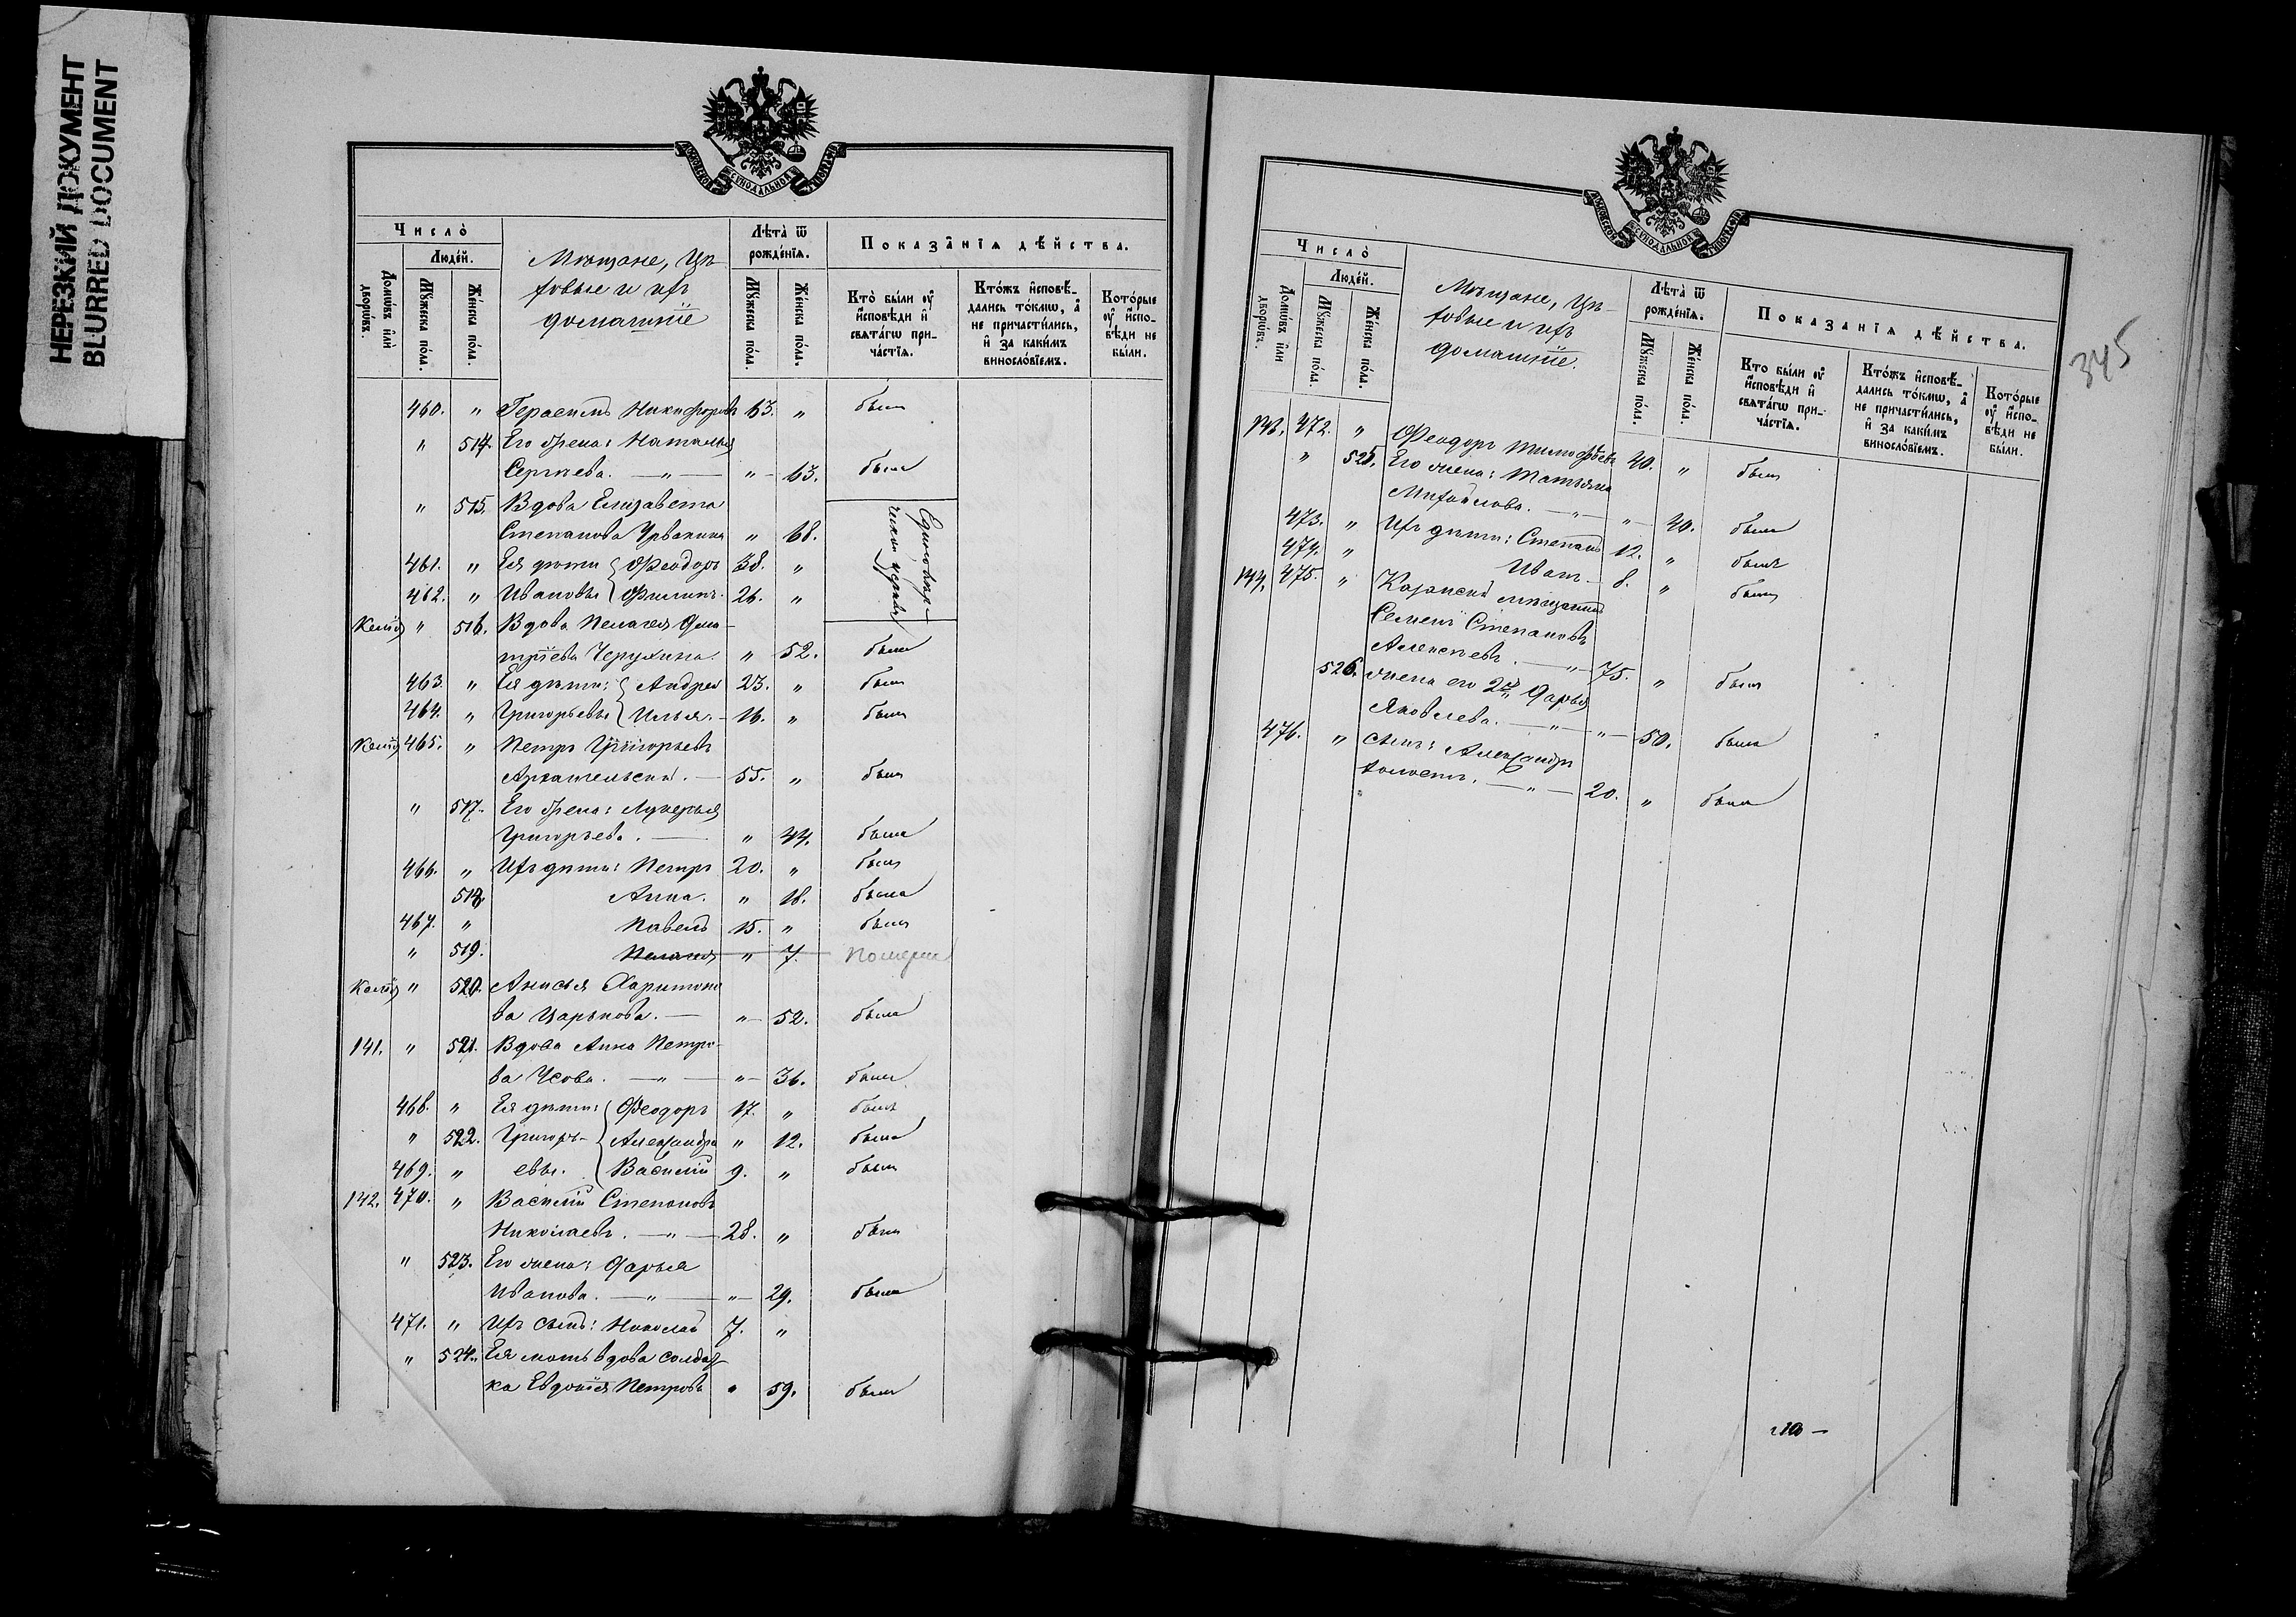 НЕРЕЗКИЙ ДОКУМЕНТ
BLURRED DOCUMENT
МОСКОВСКОЙ СѴНОДАЛЬНОЙ ТИПОГРАФІИ
Число̀
Люде́й.
Домѡ́въ и҆лѝ дворѡ́въ.
Мꙋ́жеска по́ла.
Же́нска по́ла.
Мѣщане, Це-
ховые и ихъ
домашніе
Лѣта̀ ѿ рожде́нїѧ.
Мꙋ́жеска по́ла.
Же́нска по́ла.
Показа̑нїѧ дѣ́йства.
Кто̀ бы́ли оу҆ и҆сповѣ́ди и҆ свѧта́гѡ при-
ча́стїѧ.
Кто́жъ и҆сповѣ́-
дались то́кмѡ, а҆ не причасти́лись, и҆ за каки́мъ виносло́вїемъ.
Кото́рые оу҆ и҆спо-
вѣ́ди не бы́ли.
460. " Герасимъ Никифоровъ 63. " былъ
" 514. Его жена: Наталья
Сергѣева. — " — " — 63. была
" 515. Вдова Елизавета
Степанова " 68.
Единовѣр-
461. " Ея дѣти { Ѳеодоръ 38. "
462. " Ивановы { Филипъ. 26. "
" 516. Вдова Пелагея Дми-
тріева " 52. была
463. " Ея дѣти: { Андрей 23. " былъ
464. " Григорьевы { Илья. — 16. " былъ
465. " Петръ Григорьевъ
Архангельскій. — 55. " былъ
" 517. Его жена: Лукерья
Григорьева. — " 44. была
466. " Ихъ дѣти: Петръ 20. " былъ
518. Анна. " 18. была
467. " Павелъ 15. " былъ
" 519. Пелагея " 7. Померла
" 520. Анисья Харитоно
ва Царькова. — " — 52. была
141. " 521. Вдова Анна Петро-
ва Усова. — " — " — 36. была
468. " Ея дѣти: { Ѳеодоръ 17. " былъ
" 522. Григорь- { Александра " 12. была
469. " евы. { Василій 9. " былъ
142. 470. " Василій Степановъ
Николаевъ. — " — 28. " былъ
" 523. Его жена: Дарья
Иванова. — " — " — 29. была
471. " Ихъ сынъ: Николай 7. "
" 524. Ея мать вдова солдат-
ка Евдокія Петрова " 59. была
345
МОСКОВСКОЙ СѴНОДАЛЬНОЙ ТИПОГРАФІИ
Число̀
Люде́й.
Домѡ́въ и҆лѝ дворѡ́въ.
Мꙋ́жеска по́ла.
Же́нска по́ла.
Мѣщане, Це-
ховые и ихъ
домашніе.
Лѣта̀ ѿ рожде́нїѧ.
Мꙋ́жеска по́ла.
Же́нска по́ла.
Показа̑нїѧ дѣ́йства.
Кто бы́ли оу҆ и҆сповѣ́ди и҆ свѧта́гѡ при-
ча́стїѧ.
Кто́жъ и҆сповѣ́-
дались то́кмѡ, а҆ не причасти́лись, и҆ за каки́мъ виносло́вїемъ.
Кото́рые оу҆ и҆спо-
вѣ́ди не бы́ли.
143. 472. " Ѳеодоръ Тимофѣевъ 40. " былъ
" 525. Его жена: Татьяна
Михайлова. — " — " — 40. была
473. " Ихъ дѣти: Степанъ 12. " былъ
474. " Иванъ — 8. " былъ
144. 475. " мѣщанинъ
Семенъ Степановъ
Алексѣевъ. — " — 75. " былъ
526. жена его 2я Дарья
Яковлева. — " — " — 50. была
476. " сынъ: Александръ
холостъ. — " — 20. " былъ